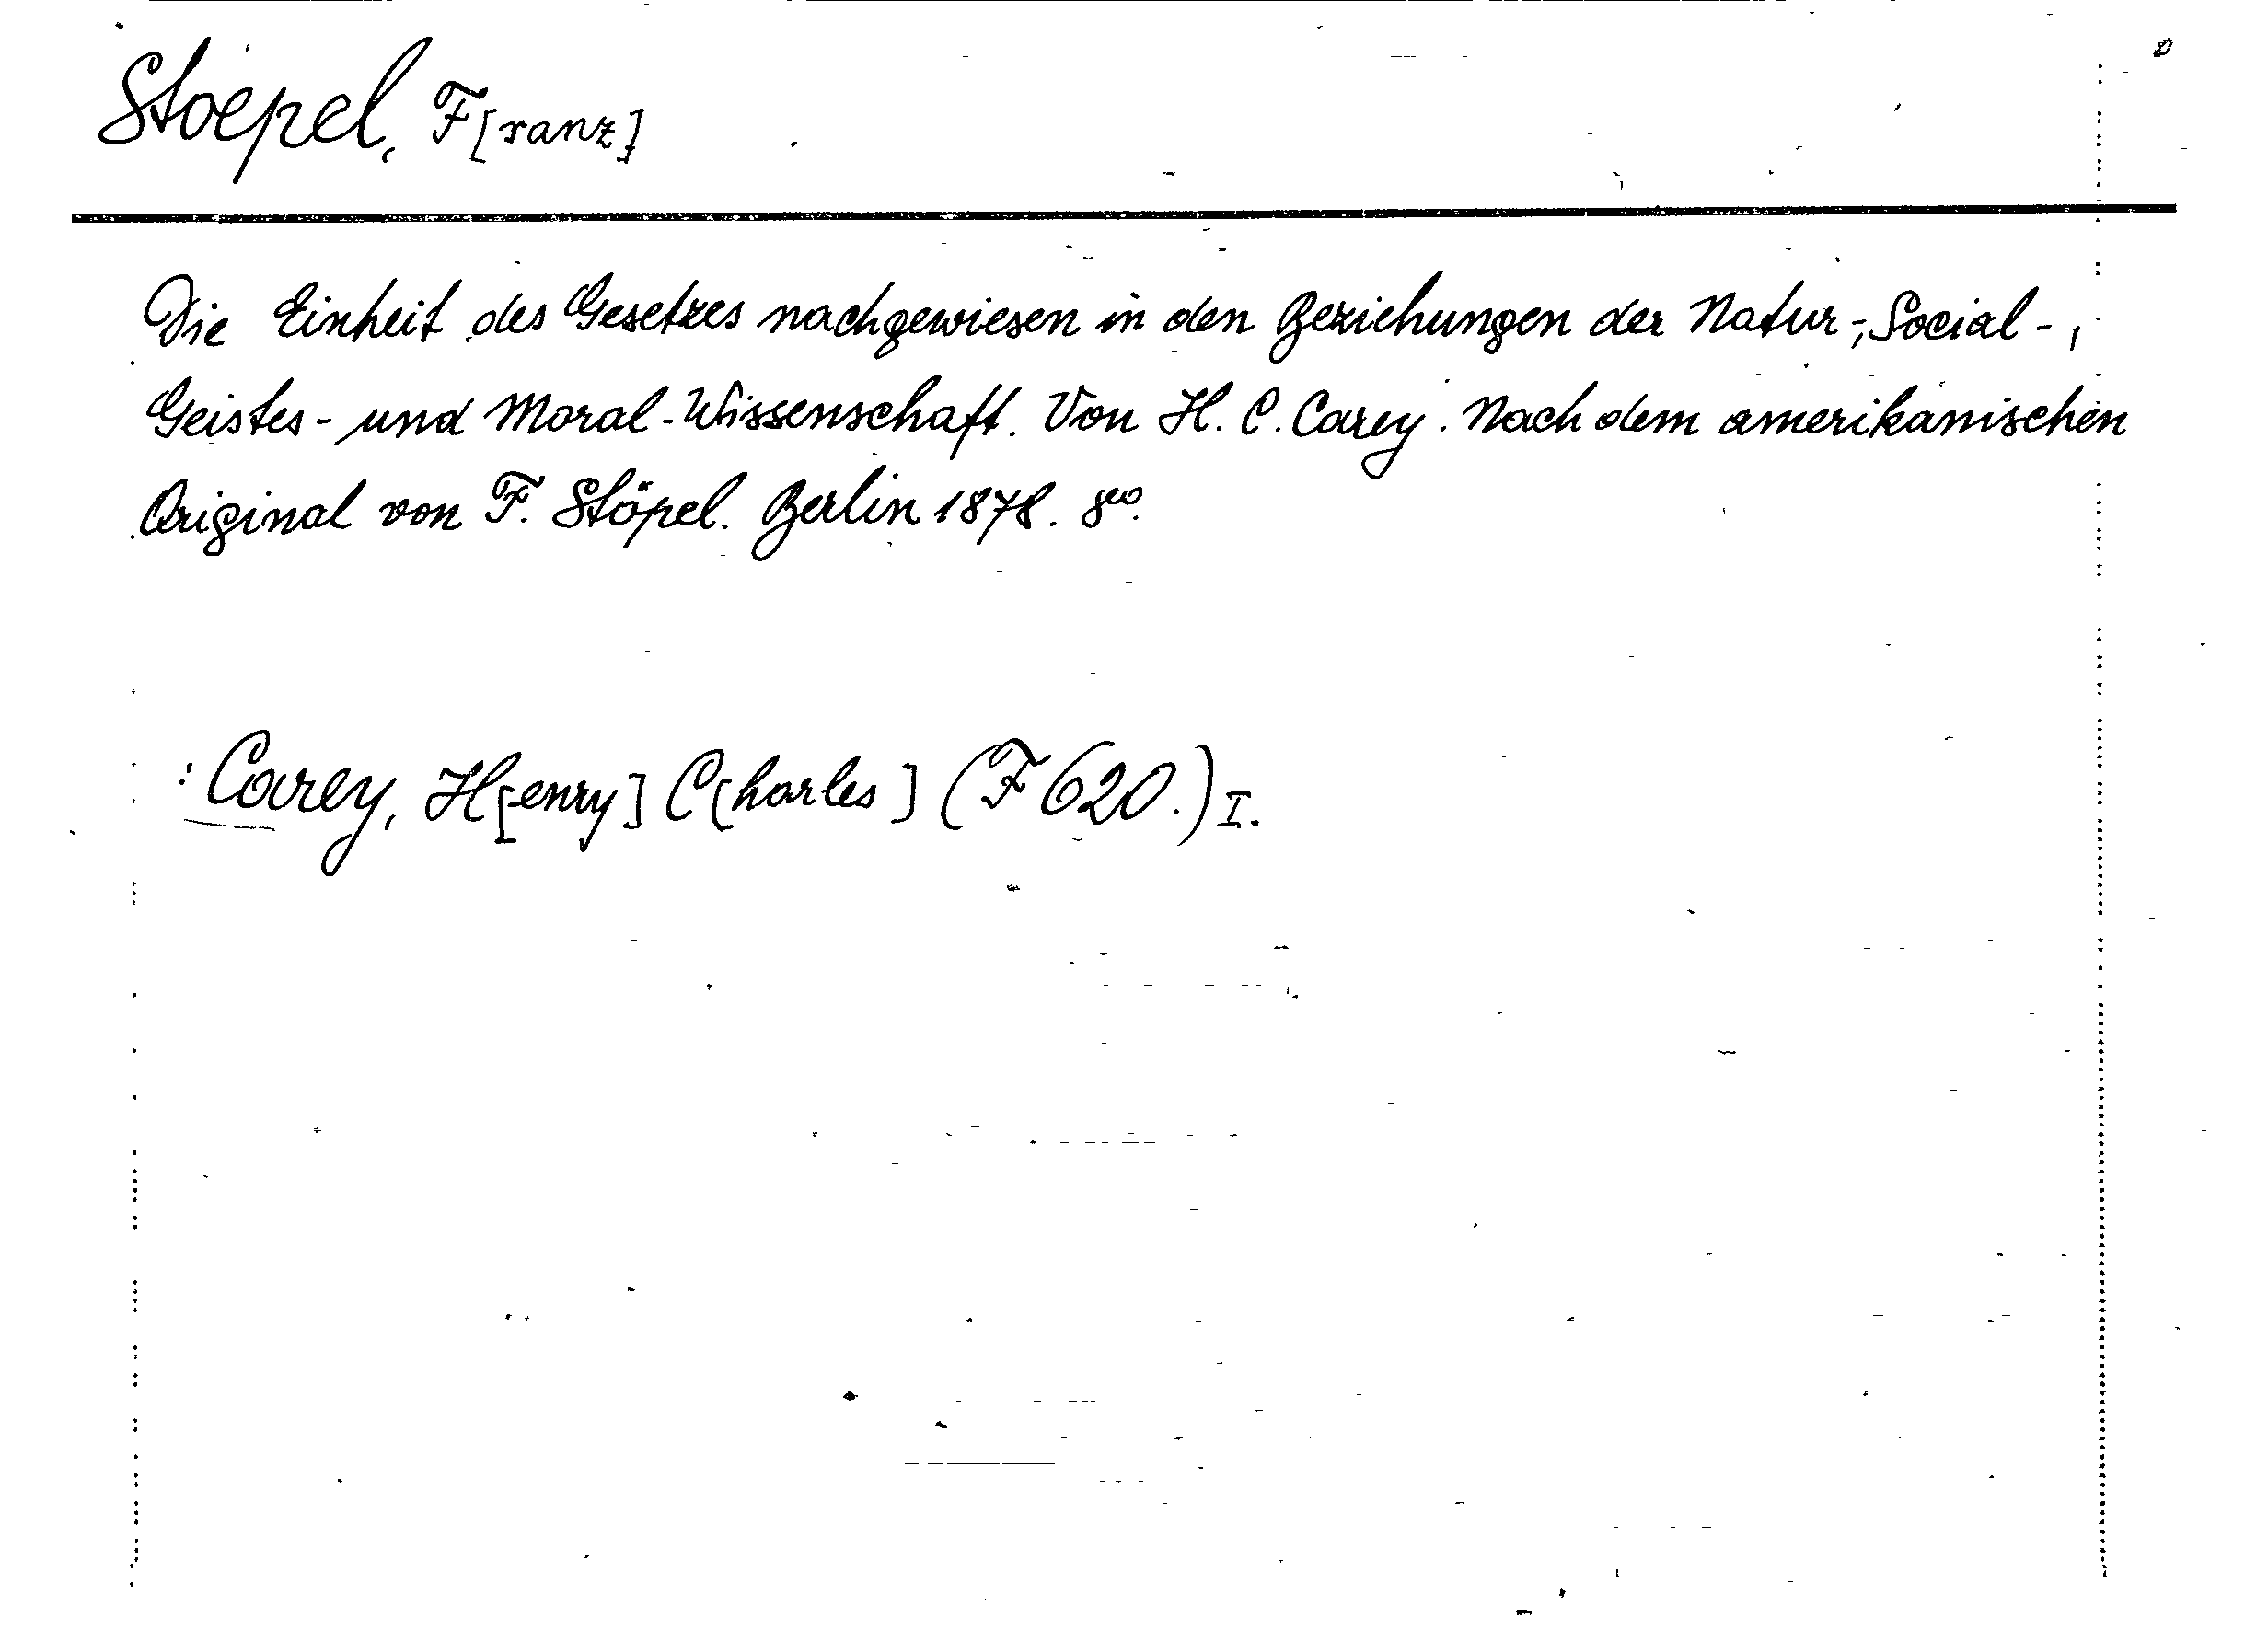 Stoepel, F[ranz]
Die Einheit des Gesetzes nachgewiesen in den Beziehungen der Natur-, Social-,
Geistes- und Moral-Wissenschaft. Von H. C. Carey. Nach dem amerikanischen
Original von F. Stöpel. Berlin 1878. 8vo.
: Carey, H[enry] C[harles] (F 620.) I.